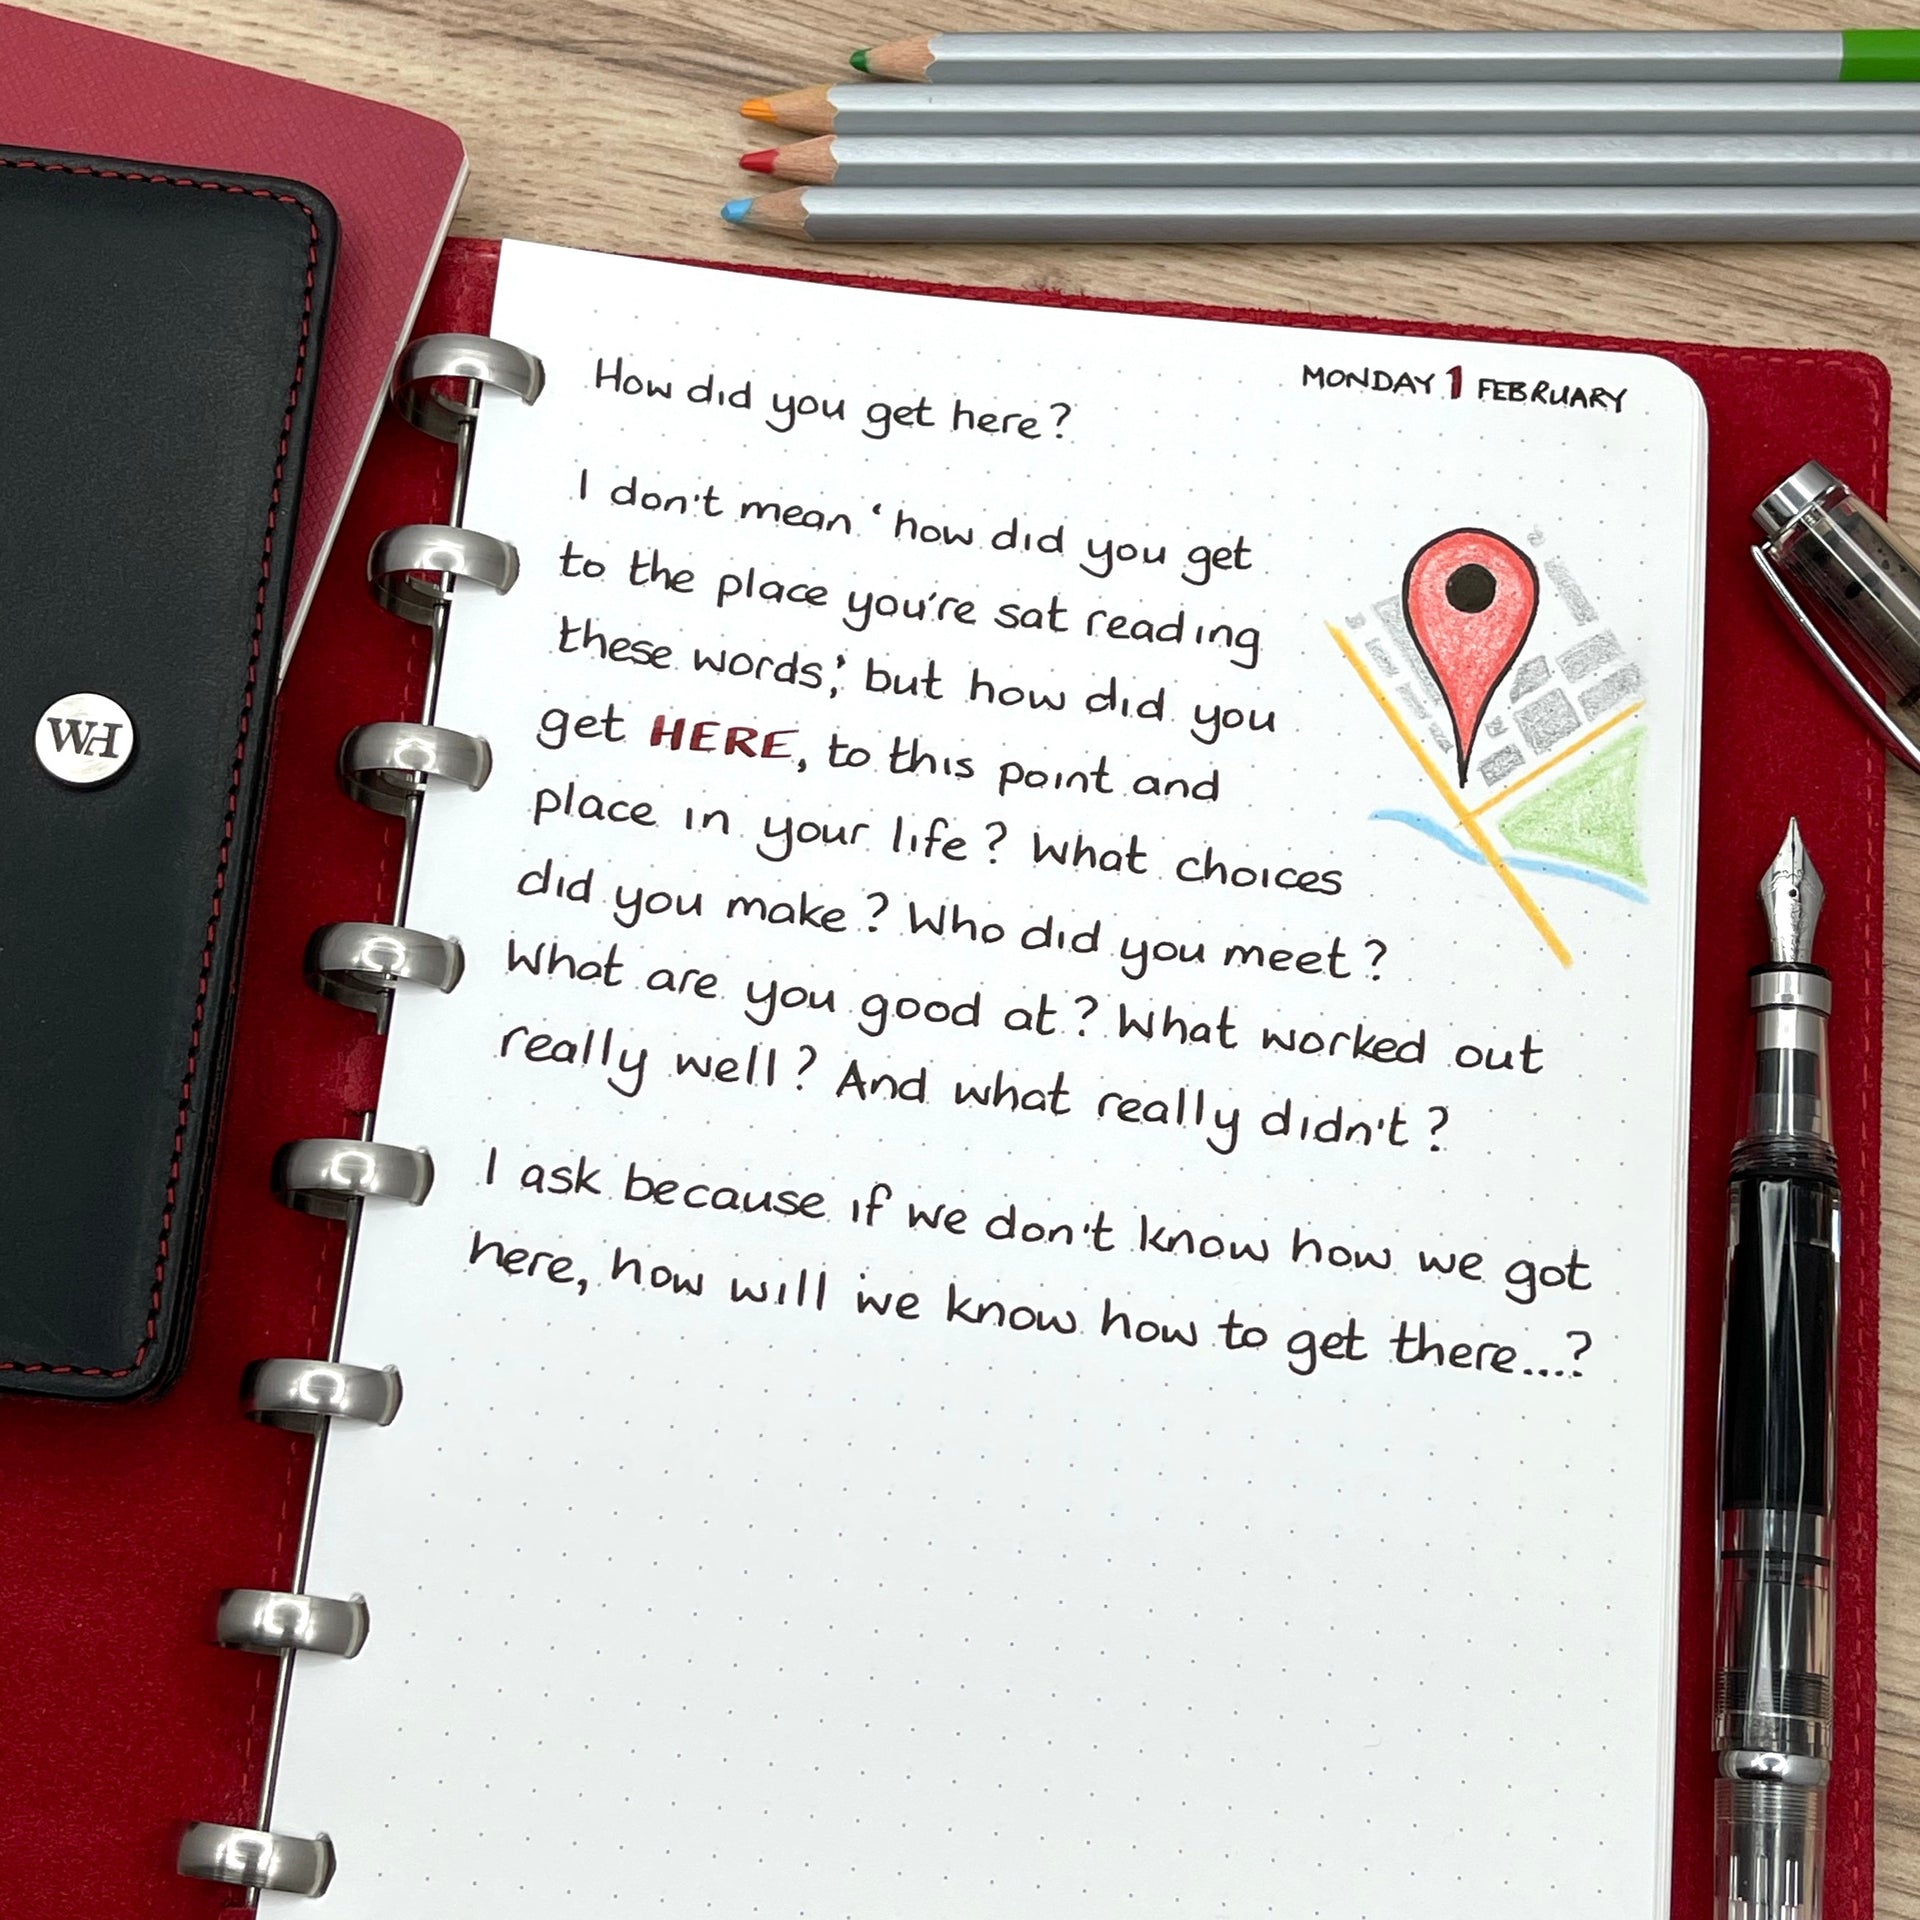 MONDAY 1 FEBRUARY
How did you get here?
I don't mean 'how did you get
to the place you're sat reading
these words,' but how did you
get HERE, to this point and
place in your life? What choices
did you make? Who did you meet?
What are you good at? What worked out
really well? And what really didn't?
I ask because if we don't know how we got
here, how will we know how to get there...?
WH